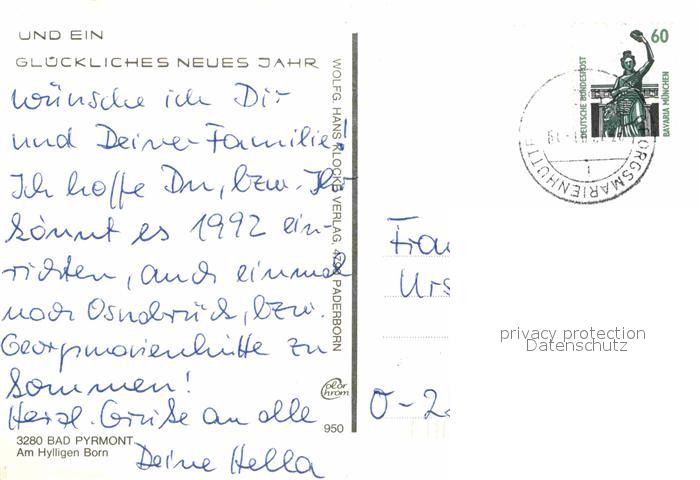 UND EIN
GLÜCKLICHES NEUES JAHR
wünsche ich Dir
und Deiner Familie!
Ich hoffe Du, bzw. Ihr
könnt es 1992 ein-
richten, auch einmal
nach Osnabrück, bzw.
Georgsmarienhütte zu
kommen!
Herzl. Grüße an alle
Deine Hella
3280 BAD PYRMONT
Am Hylligen Born
WOLFG. HANS KLOCKE VERLAG, 4790 PADERBORN
polar chrom
950
60
DEUTSCHE BUNDESPOST
BAVARIA MÜNCHEN
ORGSMARIENHÜTTE
1
Frau
Urs
O-2
privacy protection
Datenschutz